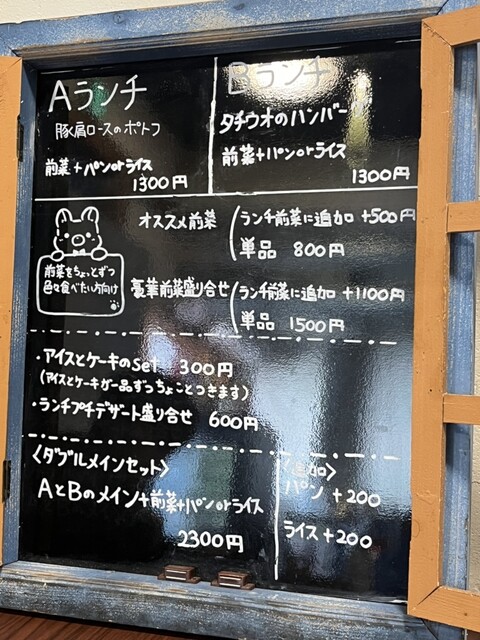 Aランチ
豚肩ロースのポトフ
前菜+パンorライス
1300円
Bランチ
タチウオのハンバー
前菜+パンorライス
1300円
オススメ前菜
ランチ前菜に追加 +500円
単品 800円
前菜をちょっとずつ
色々食べたい方向け
豪華前菜盛り合せ
ランチ前菜に追加 +1100円
単品 1500円
・アイスとケーキのset 300円
(アイスとケーキが一品ずつちょことつきます)
・ランチプチデザート盛り合せ 600円
〈ダブルメインセット〉
AとBのメイン+前菜+パンorライス
2300円
〈追加〉
パン +200
ライス +200